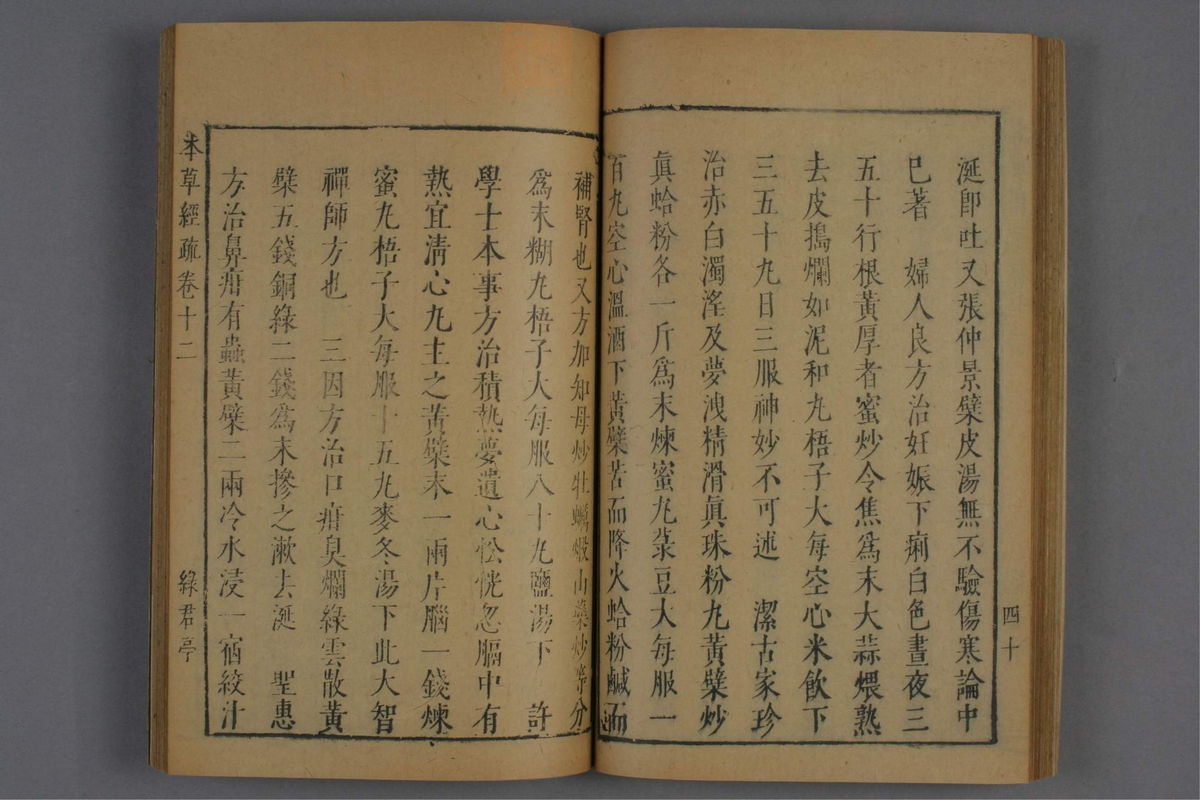 四十
涎卽吐又張仲景檗皮湯無不驗傷寒論中
已著　婦人良方治妊娠下痢白色晝夜三
五十行根黃厚者蜜炒令焦爲末大蒜煨熟
去皮搗爛如泥和丸梧子大每空心米飲下
三五十丸日三服神妙不可述　潔古家珍
治赤白濁淫及夢洩精滑眞珠粉丸黃檗炒
眞蛤粉各一斤爲末煉蜜丸菉豆大每服一
百丸空心溫酒下黃檗苦而降火蛤粉鹹而
補腎也又方加知母炒牡蠣煅山藥炒等分
爲末糊丸梧子大每服八十丸鹽湯下　許
學士本事方治積熱夢遺心忪恍忽膈中有
熱宜清心丸主之黃檗末一兩片腦一錢煉
蜜丸梧子大每服十五丸麥冬湯下此大智
禪師方也　三因方治口疳臭爛綠雲散黃
檗五錢銅綠二錢爲末摻之漱去涎　聖惠
方治鼻疳有蟲黃檗二兩冷水浸一宿絞汁
本草經疏卷十二
綠君亭